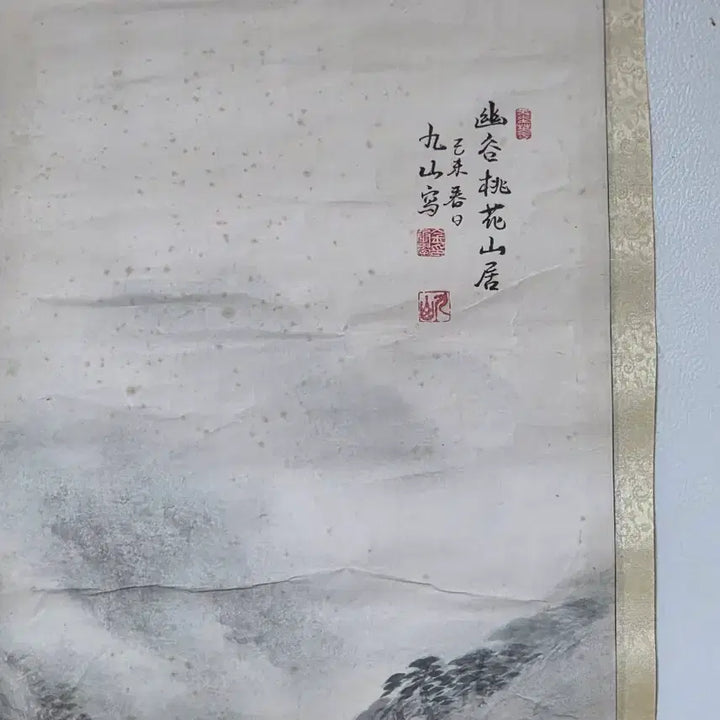 幽谷桃花山居
己未春日
九山寫
九山